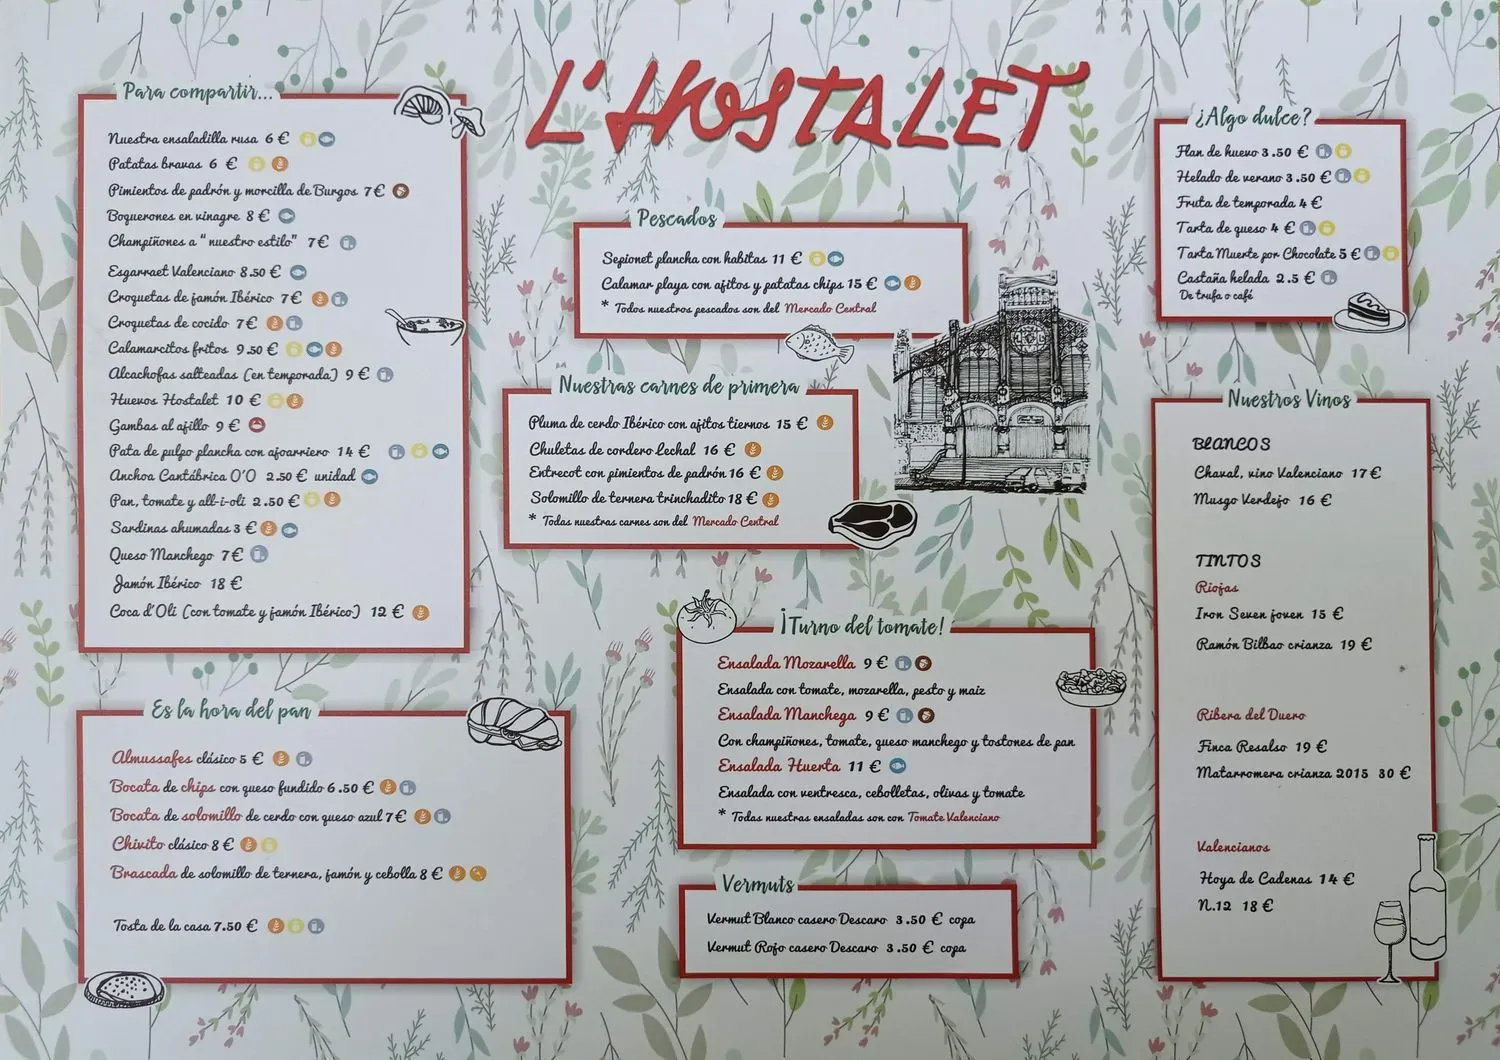 L'HOSTALET
Para compartir...
Nuestra ensaladilla rusa 6 €
Patatas bravas 6 €
Pimientos de padrón y morcilla de Burgos 7€
Boquerones en vinagre 8 €
Champiñones a "nuestro estilo" 7€
Esgarraet Valenciano 8.50 €
Croquetas de jamón Ibérico 7€
Croquetas de cocido 7€
Calamarcitos fritos 9.50 €
Alcachofas salteadas (en temporada) 9 €
Huevos Hostalet 10 €
Gambas al ajillo 9 €
Pata de pulpo plancha con ajoarriero 14 €
Anchoa Cantábrica O'O 2.50 € unidad
Pan, tomate y all-i-oli 2.50 €
Sardinas ahumadas 3 €
Queso Manchego 7€
Jamón Ibérico 18 €
Coca d'Oli (con tomate y jamón Ibérico) 12 €
Es la hora del pan
Almussafes clásico 5 €
Bocata de chips con queso fundido 6.50 €
Bocata de solomillo de cerdo con queso azul 7€
Chivito clásico 8 €
Brascada de solomillo de ternera, jamón y cebolla 8 €
Tosta de la casa 7.50 €
Pescados
Sepionet plancha con habitas 11 €
Calamar playa con ajitos y patatas chips 15 €
* Todos nuestros pescados son del Mercado Central
Nuestras carnes de primera
Pluma de cerdo Ibérico con ajitos tiernos 15 €
Chuletas de cordero Lechal 16 €
Entrecot con pimientos de padrón 16 €
Solomillo de ternera trinchadito 18 €
* Todas nuestras carnes son del Mercado Central
¡Turno del tomate!
Ensalada Mozarella 9 €
Ensalada con tomate, mozarella, pesto y maiz
Ensalada Manchega 9 €
Con champiñones, tomate, queso manchego y tostones de pan
Ensalada Huerta 11 €
Ensalada con ventresca, cebolletas, olivas y tomate
* Todas nuestras ensaladas son con Tomate Valenciano
Vermuts
Vermut Blanco casero Descaro 3.50 € copa
Vermut Rojo casero Descaro 3.50 € copa
¿Algo dulce?
Flan de huevo 3.50 €
Helado de verano 3.50 €
Fruta de temporada 4 €
Tarta de queso 4 €
Tarta Muerte por Chocolate 5 €
Castaña helada 2.5 €
De trufa o café
Nuestros Vinos
BLANCOS
Chaval, vino Valenciano 17 €
Musgo Verdejo 16 €
TINTOS
Riojas
Iron Seven joven 15 €
Ramón Bilbao crianza 19 €
Ribera del Duero
Finca Resalso 19 €
Matarromera crianza 2015 30 €
Valencianos
Hoya de Cadenas 14 €
N.12 18 €